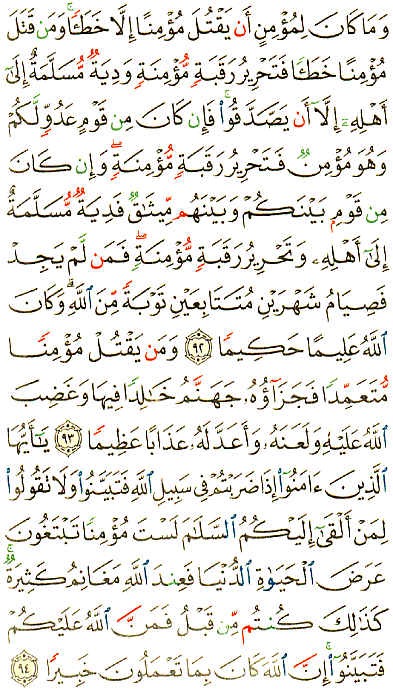 وَمَا كَانَ لِمُؤْمِنٍ أَن يَقْتُلَ مُؤْمِنًا إِلَّا خَطَـًٔا ۚ وَمَن قَتَلَ
مُؤْمِنًا خَطَـًٔا فَتَحْرِيرُ رَقَبَةٍ مُّؤْمِنَةٍ وَدِيَةٌ مُّسَلَّمَةٌ إِلَىٰٓ
أَهْلِهِۦٓ إِلَّآ أَن يَصَّدَّقُوا۟ ۚ فَإِن كَانَ مِن قَوْمٍ عَدُوٍّ لَّكُمْ
وَهُوَ مُؤْمِنٌ فَتَحْرِيرُ رَقَبَةٍ مُّؤْمِنَةٍ ۖ وَإِن كَانَ
مِن قَوْمٍۭ بَيْنَكُمْ وَبَيْنَهُم مِّيثَـٰقٌ فَدِيَةٌ مُّسَلَّمَةٌ
إِلَىٰٓ أَهْلِهِۦ وَتَحْرِيرُ رَقَبَةٍ مُّؤْمِنَةٍ ۖ فَمَن لَّمْ يَجِدْ
فَصِيَامُ شَهْرَيْنِ مُتَتَابِعَيْنِ تَوْبَةً مِّنَ ٱللَّهِ ۗ وَكَانَ
ٱللَّهُ عَلِيمًا حَكِيمًا ٩٢ وَمَن يَقْتُلْ مُؤْمِنًا
مُّتَعَمِّدًا فَجَزَآؤُهُۥ جَهَنَّمُ خَـٰلِدًا فِيهَا وَغَضِبَ
ٱللَّهُ عَلَيْهِ وَلَعَنَهُۥ وَأَعَدَّ لَهُۥ عَذَابًا عَظِيمًا ٩٣ يَـٰٓأَيُّهَا
ٱلَّذِينَ ءَامَنُوٓا۟ إِذَا ضَرَبْتُمْ فِى سَبِيلِ ٱللَّهِ فَتَبَيَّنُوا۟ وَلَا تَقُولُوا۟
لِمَنْ أَلْقَىٰٓ إِلَيْكُمُ ٱلسَّلَـٰمَ لَسْتَ مُؤْمِنًا تَبْتَغُونَ
عَرَضَ ٱلْحَيَوٰةِ ٱلدُّنْيَا فَعِندَ ٱللَّهِ مَغَانِمُ كَثِيرَةٌ ۚ
كَذَٰلِكَ كُنتُم مِّن قَبْلُ فَمَنَّ ٱللَّهُ عَلَيْكُمْ
فَتَبَيَّنُوٓا۟ ۚ إِنَّ ٱللَّهَ كَانَ بِمَا تَعْمَلُونَ خَبِيرًا ٩٤